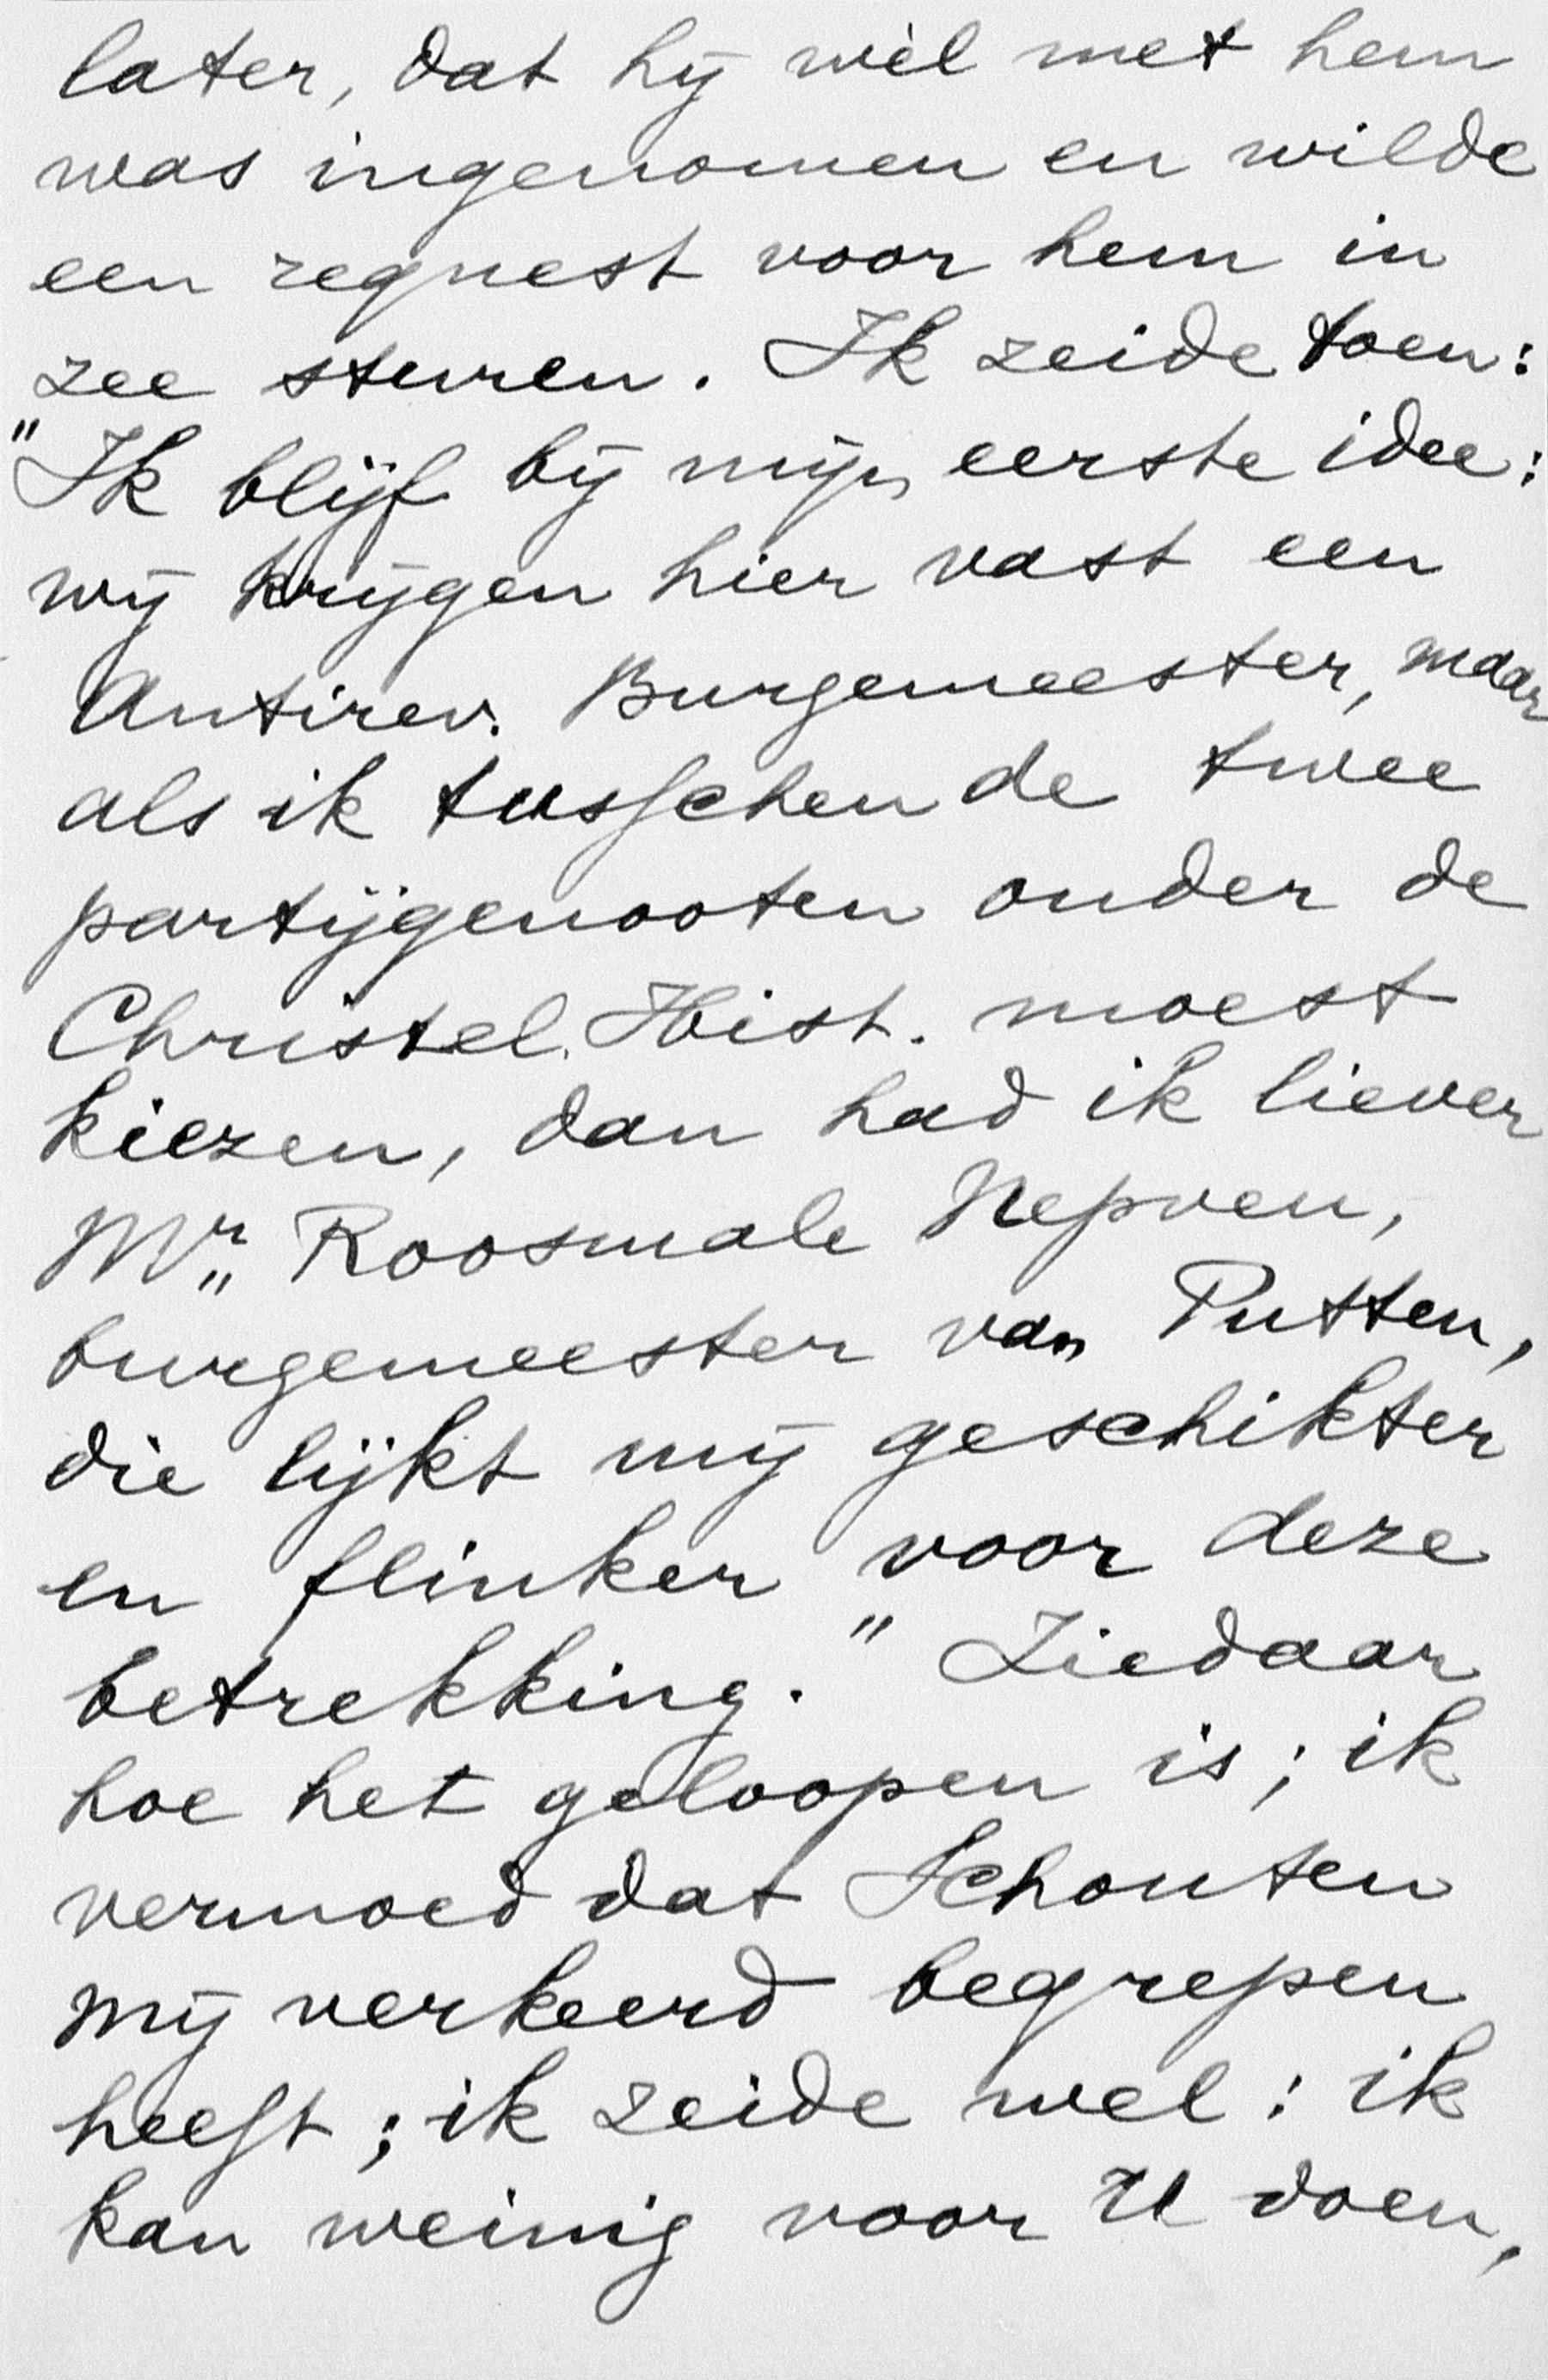 later, dat hij wèl met hem
was ingenomen en wilde
een request voor hem in
zee sturen. Ik zeide toen:
"Ik blijf bij mijn eerste idee:
wij krijgen hier vast een
Antirev. Burgemeester, maar
als ik tusschen de twee
partijgenooten onder de
Christel. Hist. moest
kiezen, dan had ik liever
Mr. Roosmale Nepveu,
burgemeester van Putten,
die lijkt mij geschikter
en flinker voor deze
betrekking." Ziedaar
hoe het geloopen is; ik
vermoed dat Schouten
mij verkeerd begrepen
heeft; ik zeide wel: ik
kan weinig voor U doen,